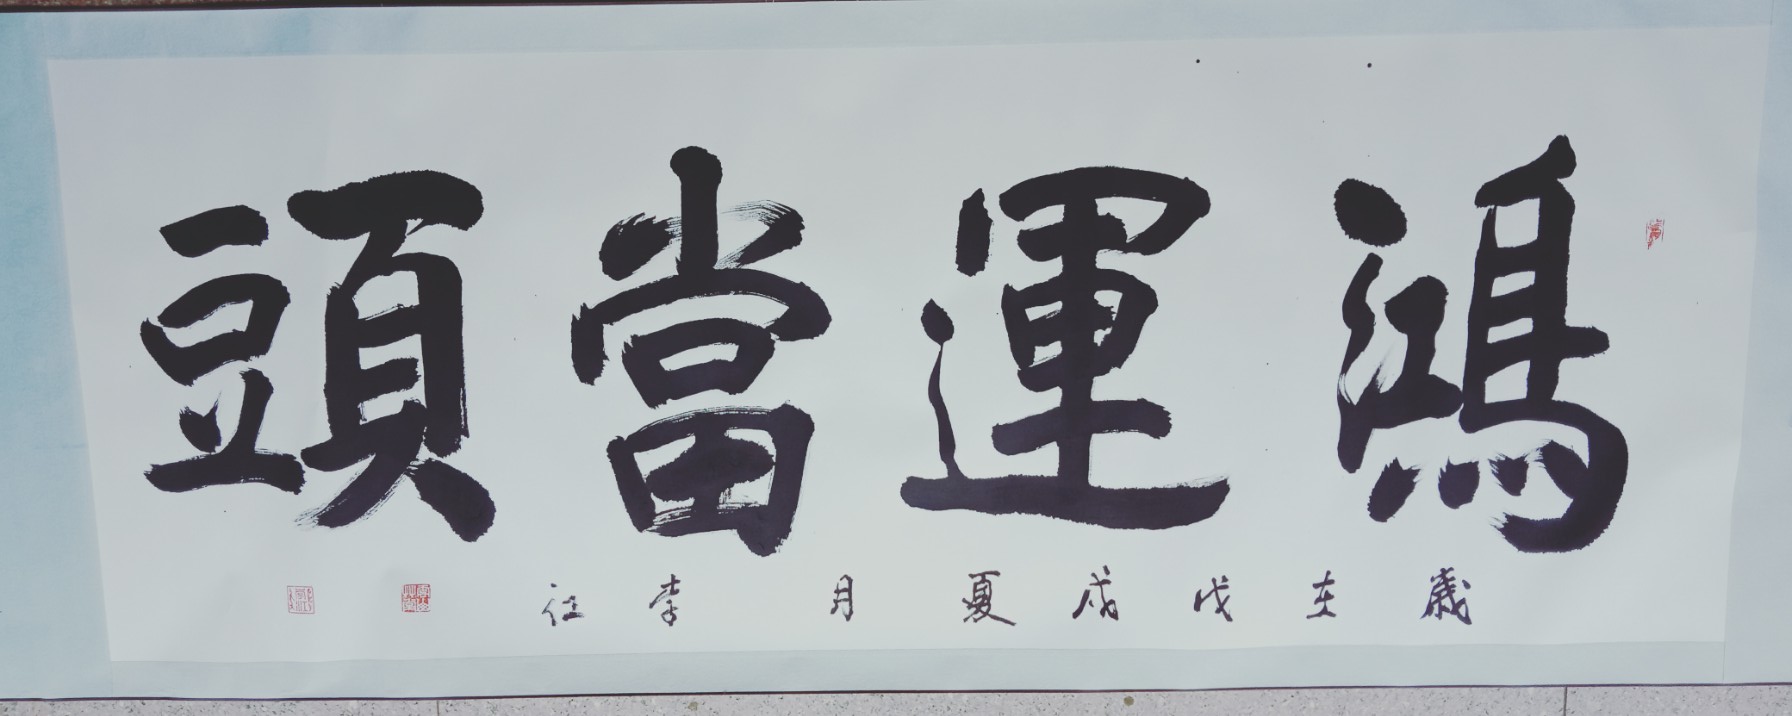 鴻運當頭
歲在戊戌夏月李